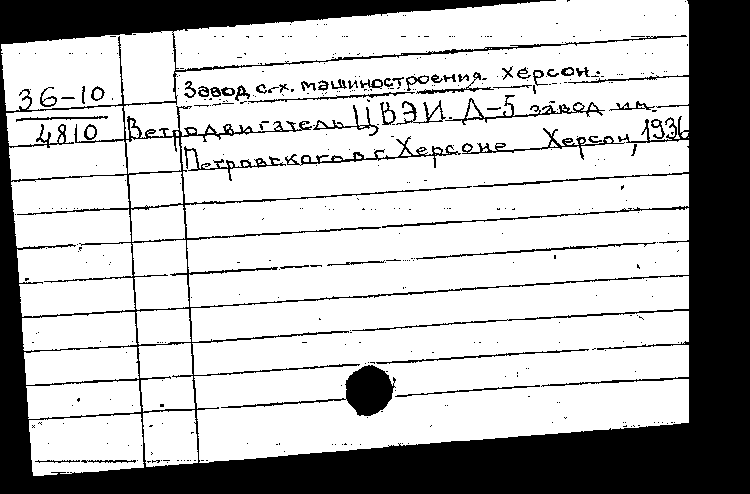 36-10
4810
Завод с.-х. машиностроения. Херсон.
Ветродвигатель ЦВЭИ. Д-5 завод им.
Петровского в г. Херсоне. Херсон, 1936